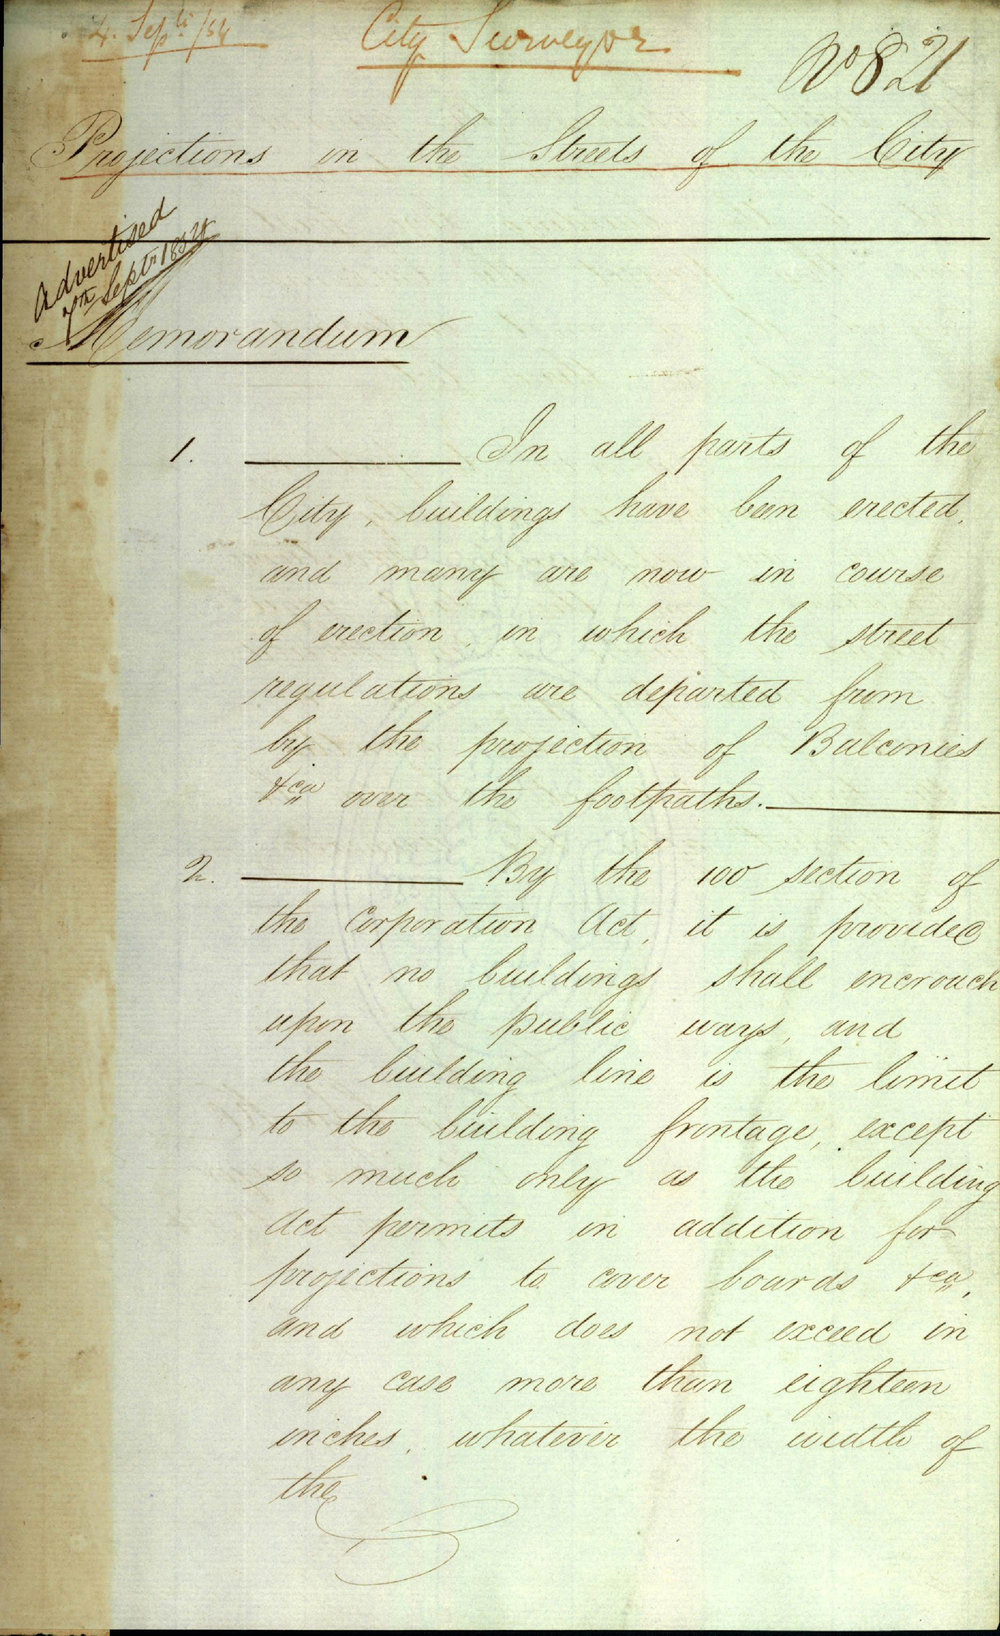 4. Septr/54
City Surveyor
No 821
Projections in the Streets of the City
Advertised
7th Septr 1854
Memorandum
1. In all parts of the
City, buildings have been erected,
and many are now in course
of erection, in which the street
regulations are departed from
by the projection of Balconies
&ca over the footpaths.
2. By the 100 section of
the Corporation Act, it is provided
that no buildings shall encroach
upon the public ways, and
the building line is the limit
to the building frontage, except
so much only as the building
Act permits in addition for
projections to cover boards &ca,
and which does not exceed in
any case more than eighteen
inches, whatever the width of
the